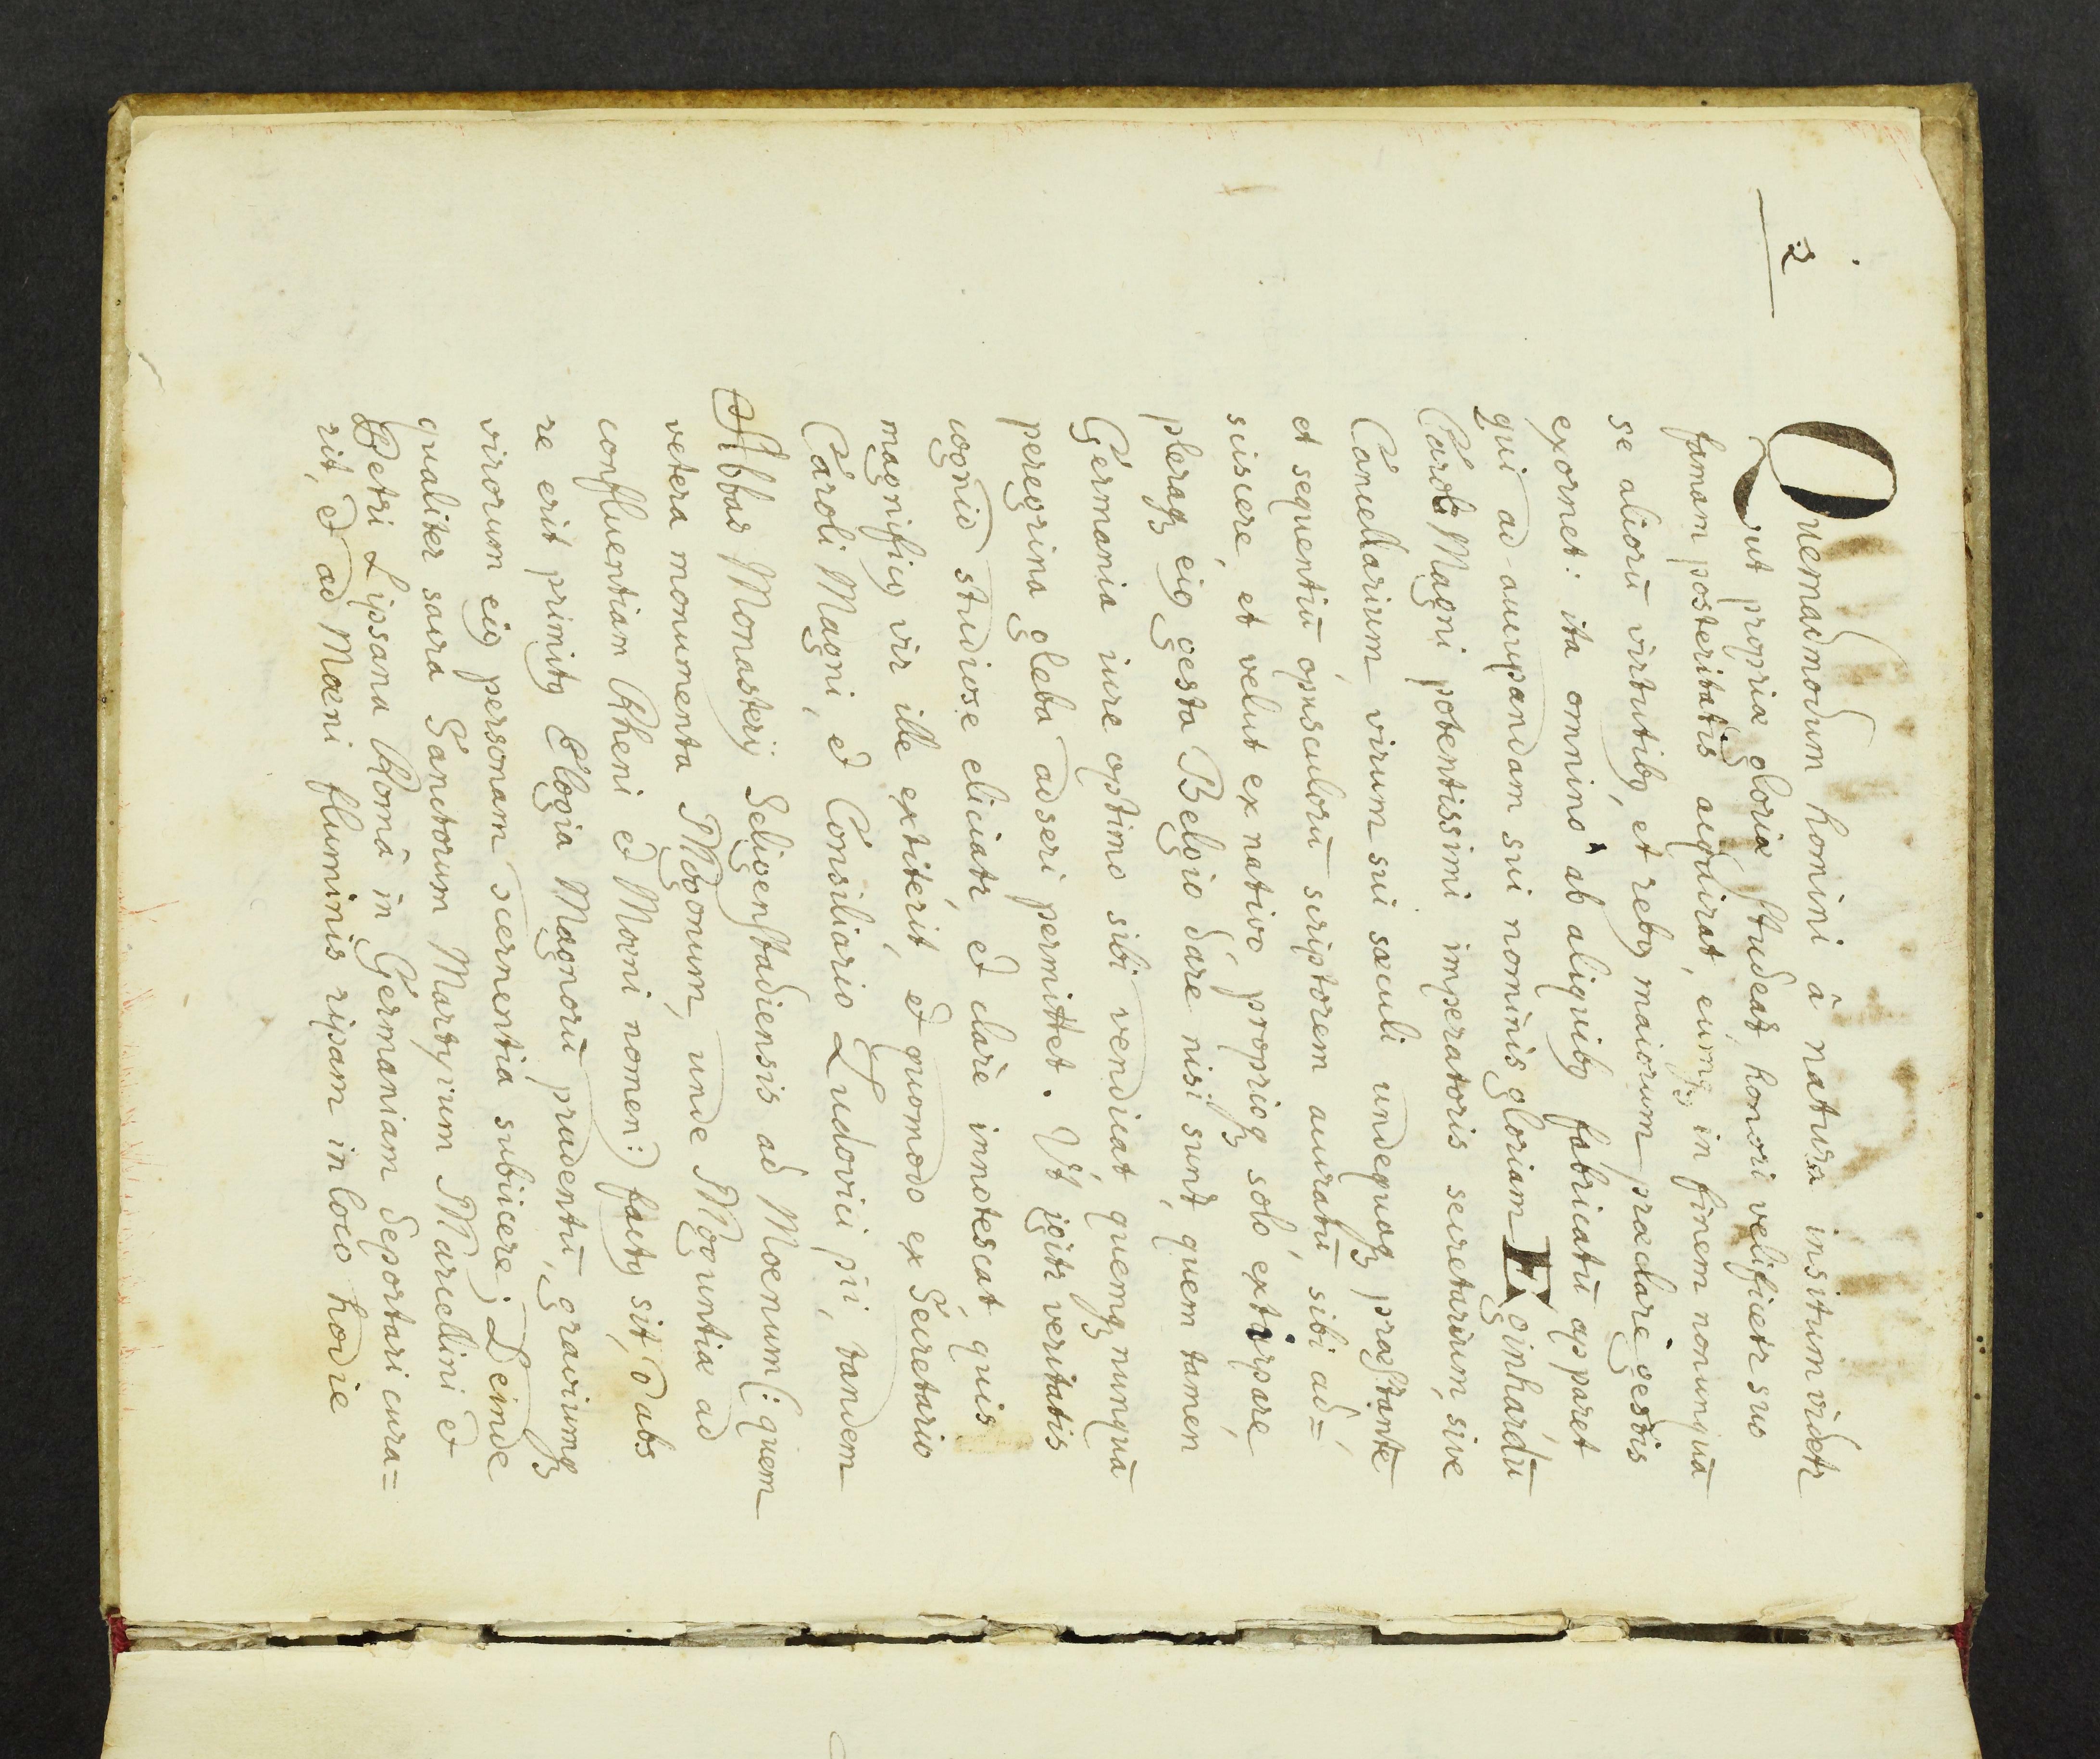 2
Quemadmodum homini â natura insitum videtr
ut propriæ gloriæ studeat, honori velificetr suo
famam posteritatis acquirat, eumq́ꝫ in finem nonunquã
se aliorũ virtutibꝯ, et rebꝯ maiorum præclarè gestis
exornet: ita omninò ab aliquibꝯ fabricatũ apparet
qui ad aucupandam sui nominis gloriam Eginhardũ
Caroli Magni potentissimi imperatoris secretarium, sive
Cancellarium virum sui sæculi undequaqꝫ præstante
et sequentiũ opusculorũ scriptorem accuratũ sibi ad=
sciscere, et velut ex nativo proprioqꝫ solo, extirpare,
pleraqꝫ eiꝯ gesta Belgio dare nisi sunt, quem tamen
Germania iure optimo sibi vendicat quemqꝫ nunquã
peregrina gleba adseri permittet. Vt igitr veritatis
cognitio studiose eliciatr et clarè innotescat, quis
magnificꝯ vir ille extiterit, et quomodo ex Secretario
Caroli Magni, et Consiliario Ludovici pii, tandem
Abbas Monasterij Seligenstadiensis ad Moenum (: quem
vetera monumenta Mogonum, unde Moguntiæ ad
confluentiam Rheni et Moeni nomen :) factꝯ sit, ab
re erit primitꝯ Elogia Magnorũ prudentũ, graviumqꝫ
virorum eiꝯ personam scernentia subiicere; Deinde
qualiter sacra Sanctorum Martyrum Marcellini et
Petri Lipsana Româ in Germaniam deportari cura=
rit, et ad Mœni fluminis ripam in loco hodie